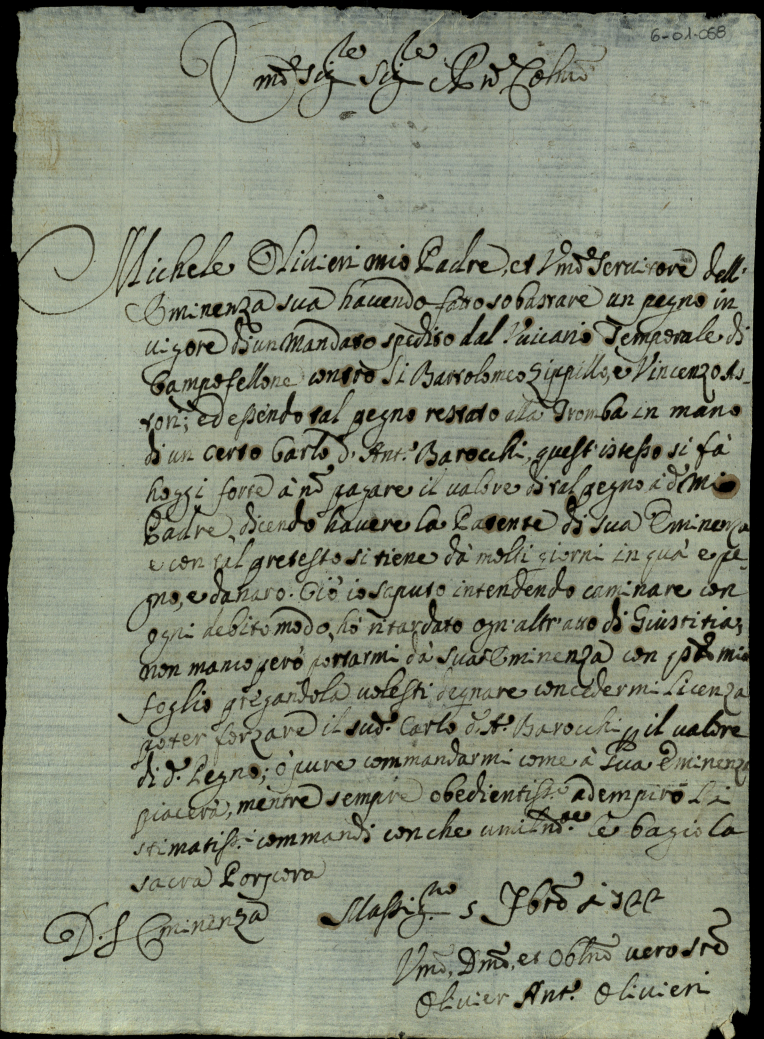 6-01-068
Michele Olivieri mio Padre, et Vmo Servitore dell'
Eminenza sua havendo fatto sobastare un pegno in
vigore d'un Mandato spedito dal Vicario Temporale di
Campofellone contro li Bartolomeo Zippillo, e Vincenzo As-
tori; ed essendo tal pegno restato alla Tromba in mano
di un certo Carlo d'Ant.o Barocchi, quest'istesso si fà
hoggi forte à nō pagare il valore di tal pegno à d.o Mio
Padre, dicendo havere la Patente di sua Eminenza
e con tal pretesto si tiene dà molti giorni in quà e pe-
gno, e danaro. Ciò io saputo intendendo caminare con
ogni debito modo, hò ritardato ogn'altr'atto di Giustitia;
non manco però portarmi dà sua Eminenza con mio
foglio pregandola volesti degnare concedermi Licenza
poter forzare il sud.o Carlo d'A.o Barocchi il valore
di d.o Pegno; ò pure commandarmi come à Sua Eminenza
piacerà, mentre sempre obedientiss.o adempirò li
stimatiss.i commandi con che umilm.te le bagio la
sacra Porpora
D. S. Eminenza
Massig.no 5 7bre 1722
Vmo, Dmo, et Oblmo vero Sre
Olivier Ant.o Olivieri